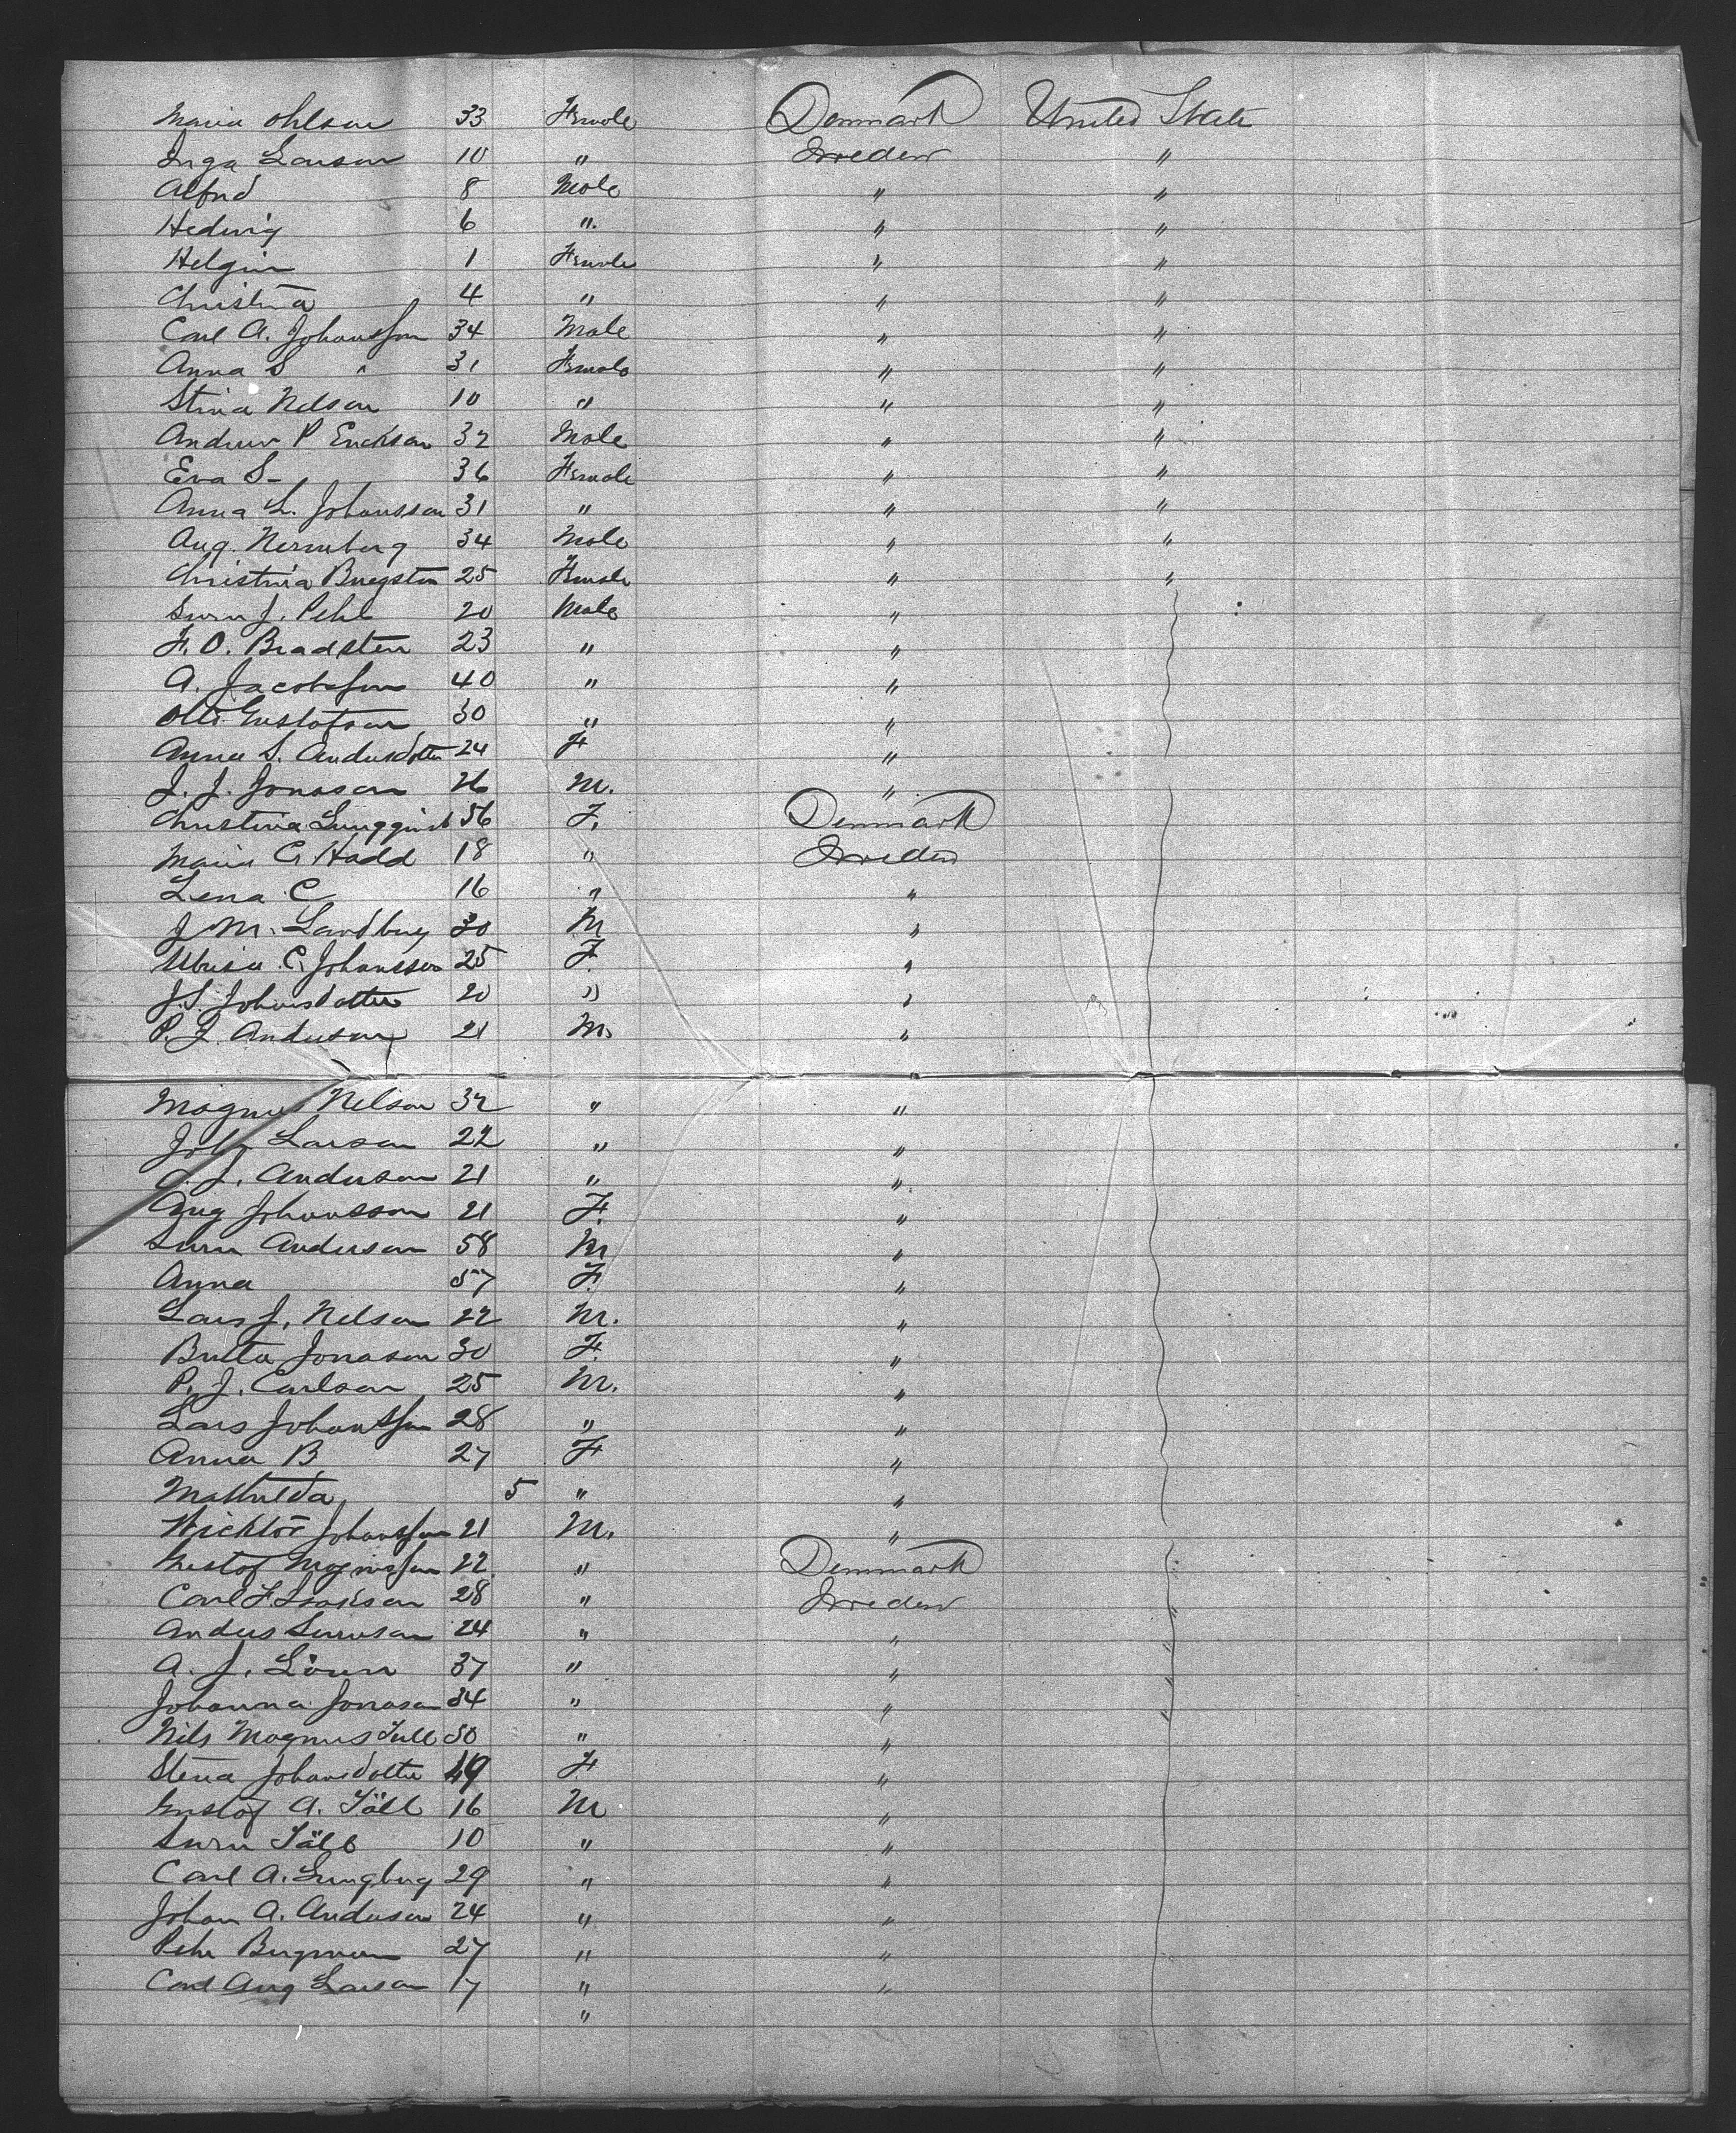 Maria Ohlson 33 Female Denmark United State
Inga Larson 10 " Sweden "
Alfred 8 Male " "
Hedwig 6 " " "
Helgin 1 Female " "
Christina 4 " " "
Carl A. Johansson 34 Male " "
Anna S " 31 Female " "
Stina Nelson 10 " " "
Andrew P Erickson 32 Male " "
Eva S- 36 Female " "
Anna L. Johansson 31 " " "
Aug. 34 Male " "
Christina 25 Female " "
Sven J. Pehl 20 Male "
F. O. Bradsten 23 " "
A. Jacobsson 40 " "
Olle Gustafson 30 " "
Anna S. Andersdotter 24 F "
J. J. Jonason 26 M. "
Christina Lungquist 56 F. Denmark
Maria C. Hadd 18 " Sweden
Lena C 16 " "
J. M. Landberg 30 M "
C. Johansson 25 F. "
J. S. Johansdotter 20 " "
P. J. Anderson 21 M. "
Magnus Nelson 32 " "
John Larson 22 " "
J. Anderson 21 " "
Aug Johansson 21 F. "
Sven Anderson 58 M "
Anna 57 F. "
Lars J. Nelson 22 M. "
Britta Jonason 30 F. "
P. J. Carlson 25 M. "
Lars Johansson 28 " "
Anna B 27 F "
Mathilda 5 " "
Wicktor Johansson 21 M. "
Gustof Magnusson 22 " Denmark
Carl F. Isakson 28 " Sweden
Anders Swenson 24 " "
A. J. 37 " "
Johanna Jonason 34 " "
Nils Magnus 50 " "
Stena Johansdotter 49 F. "
Gustof A. Täll 16 M "
Sven Täll 10 " "
Carl A. Lungberg 29 " "
Johan A. Anderson 24 " "
Pehr Bergman 27 " "
Carl Aug Larson 17 " "
"